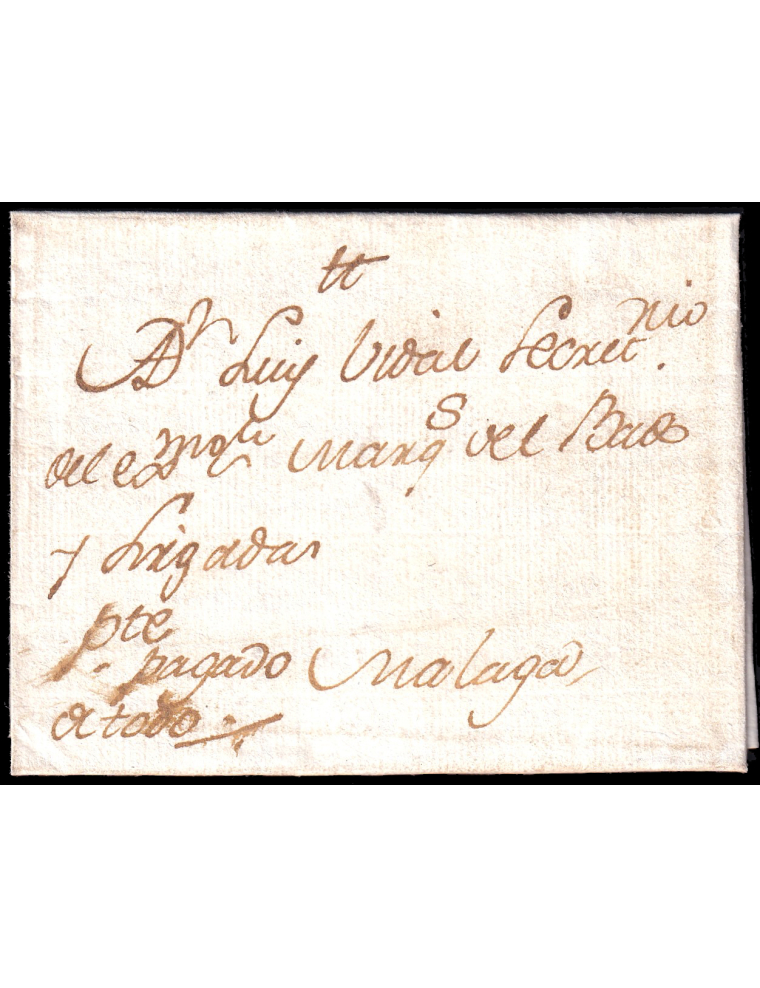 tt
A Dn Luis Vidal Secretnio.
del Marqs del
y Brigada
pte pagado Malaga
a todo